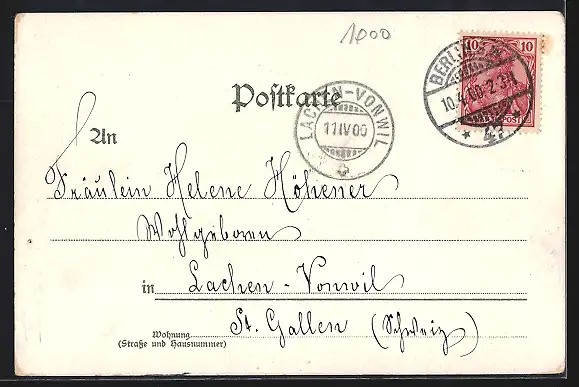 1900
10 10
BERLIN
10.4.00.2-3N.
Postkarte
LACHEN-VONWIL
11 IV 00
An
Fräulein Helene Höhener
Wohlgeboren
in Lachen-Vonwil
St. Gallen (Schweiz)
Wohnung
(Straße und Hausnummer)